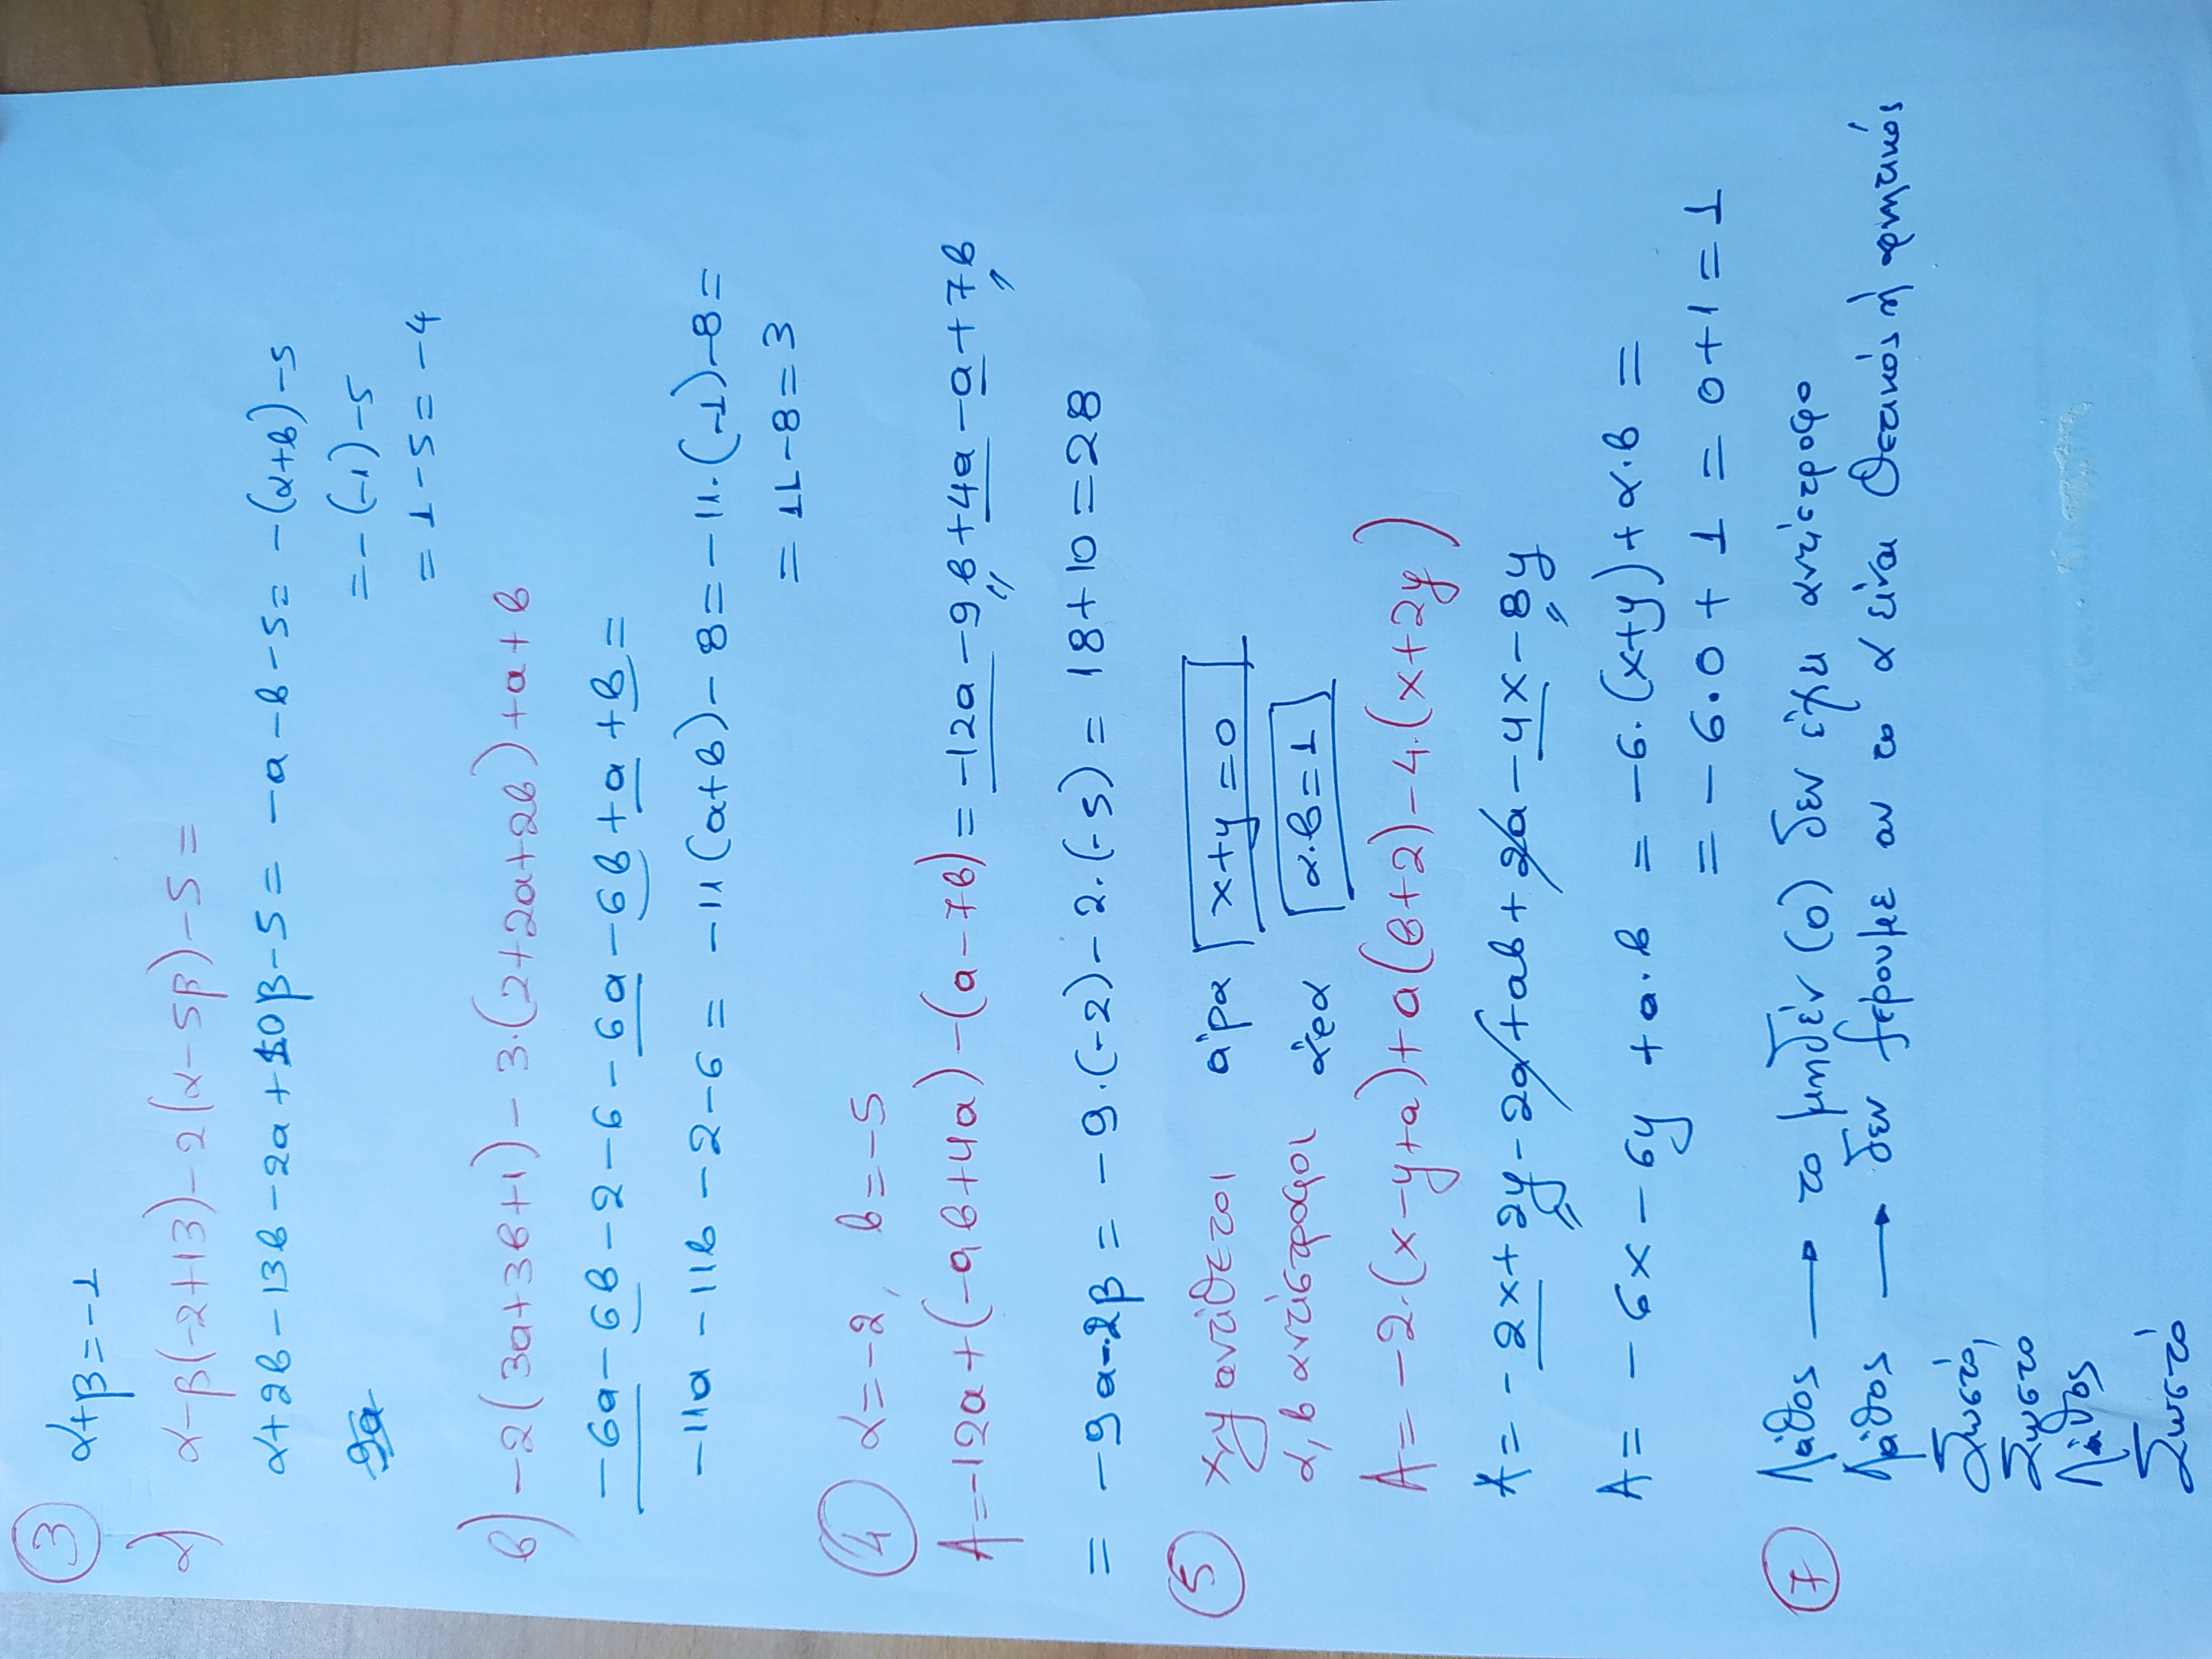 ③ α+β=-1
α) α-β(-2+13)-2(α-5β)-5=
α+2β-13β-2α+10β-5= -α-β-5= -(α+β)-5
=-(-1)-5
=1-5=-4
β) -2(3α+3β+1)-3·(2+2α+2β)+α+β
-6α-6β-2-6-6α-6β+α+β=
-11α-11β-2-6= -11(α+β)-8= -11·(-1)-8=
= 11-8=3
④ α=-2, β=-5
A=-12α+(-9β+4α)-(α-7β)= -12α-9β+4α-α+7β
= -9α-2β= -9·(-2)-2·(-5)= 18+10=28
⑤ x,y αντίθετοι άρα x+y=0
α,β αντίστροφοι άρα α·β=1
A=-2·(x-y+α)+α(β+2)-4·(x+2y)
A=-2x+2y-2α+αβ+2α-4x-8y
A= -6x-6y+α·β = -6·(x+y)+α·β =
= -6·0+1=0+1=1
⑦ Λάθος → το μηδέν (0) δεν έχει αντίστροφο
Λάθος → δεν ξέρουμε αν το α είναι θετικός ή αρνητικός
Σωστό,
Σωστο
Λάθος
Σωστό